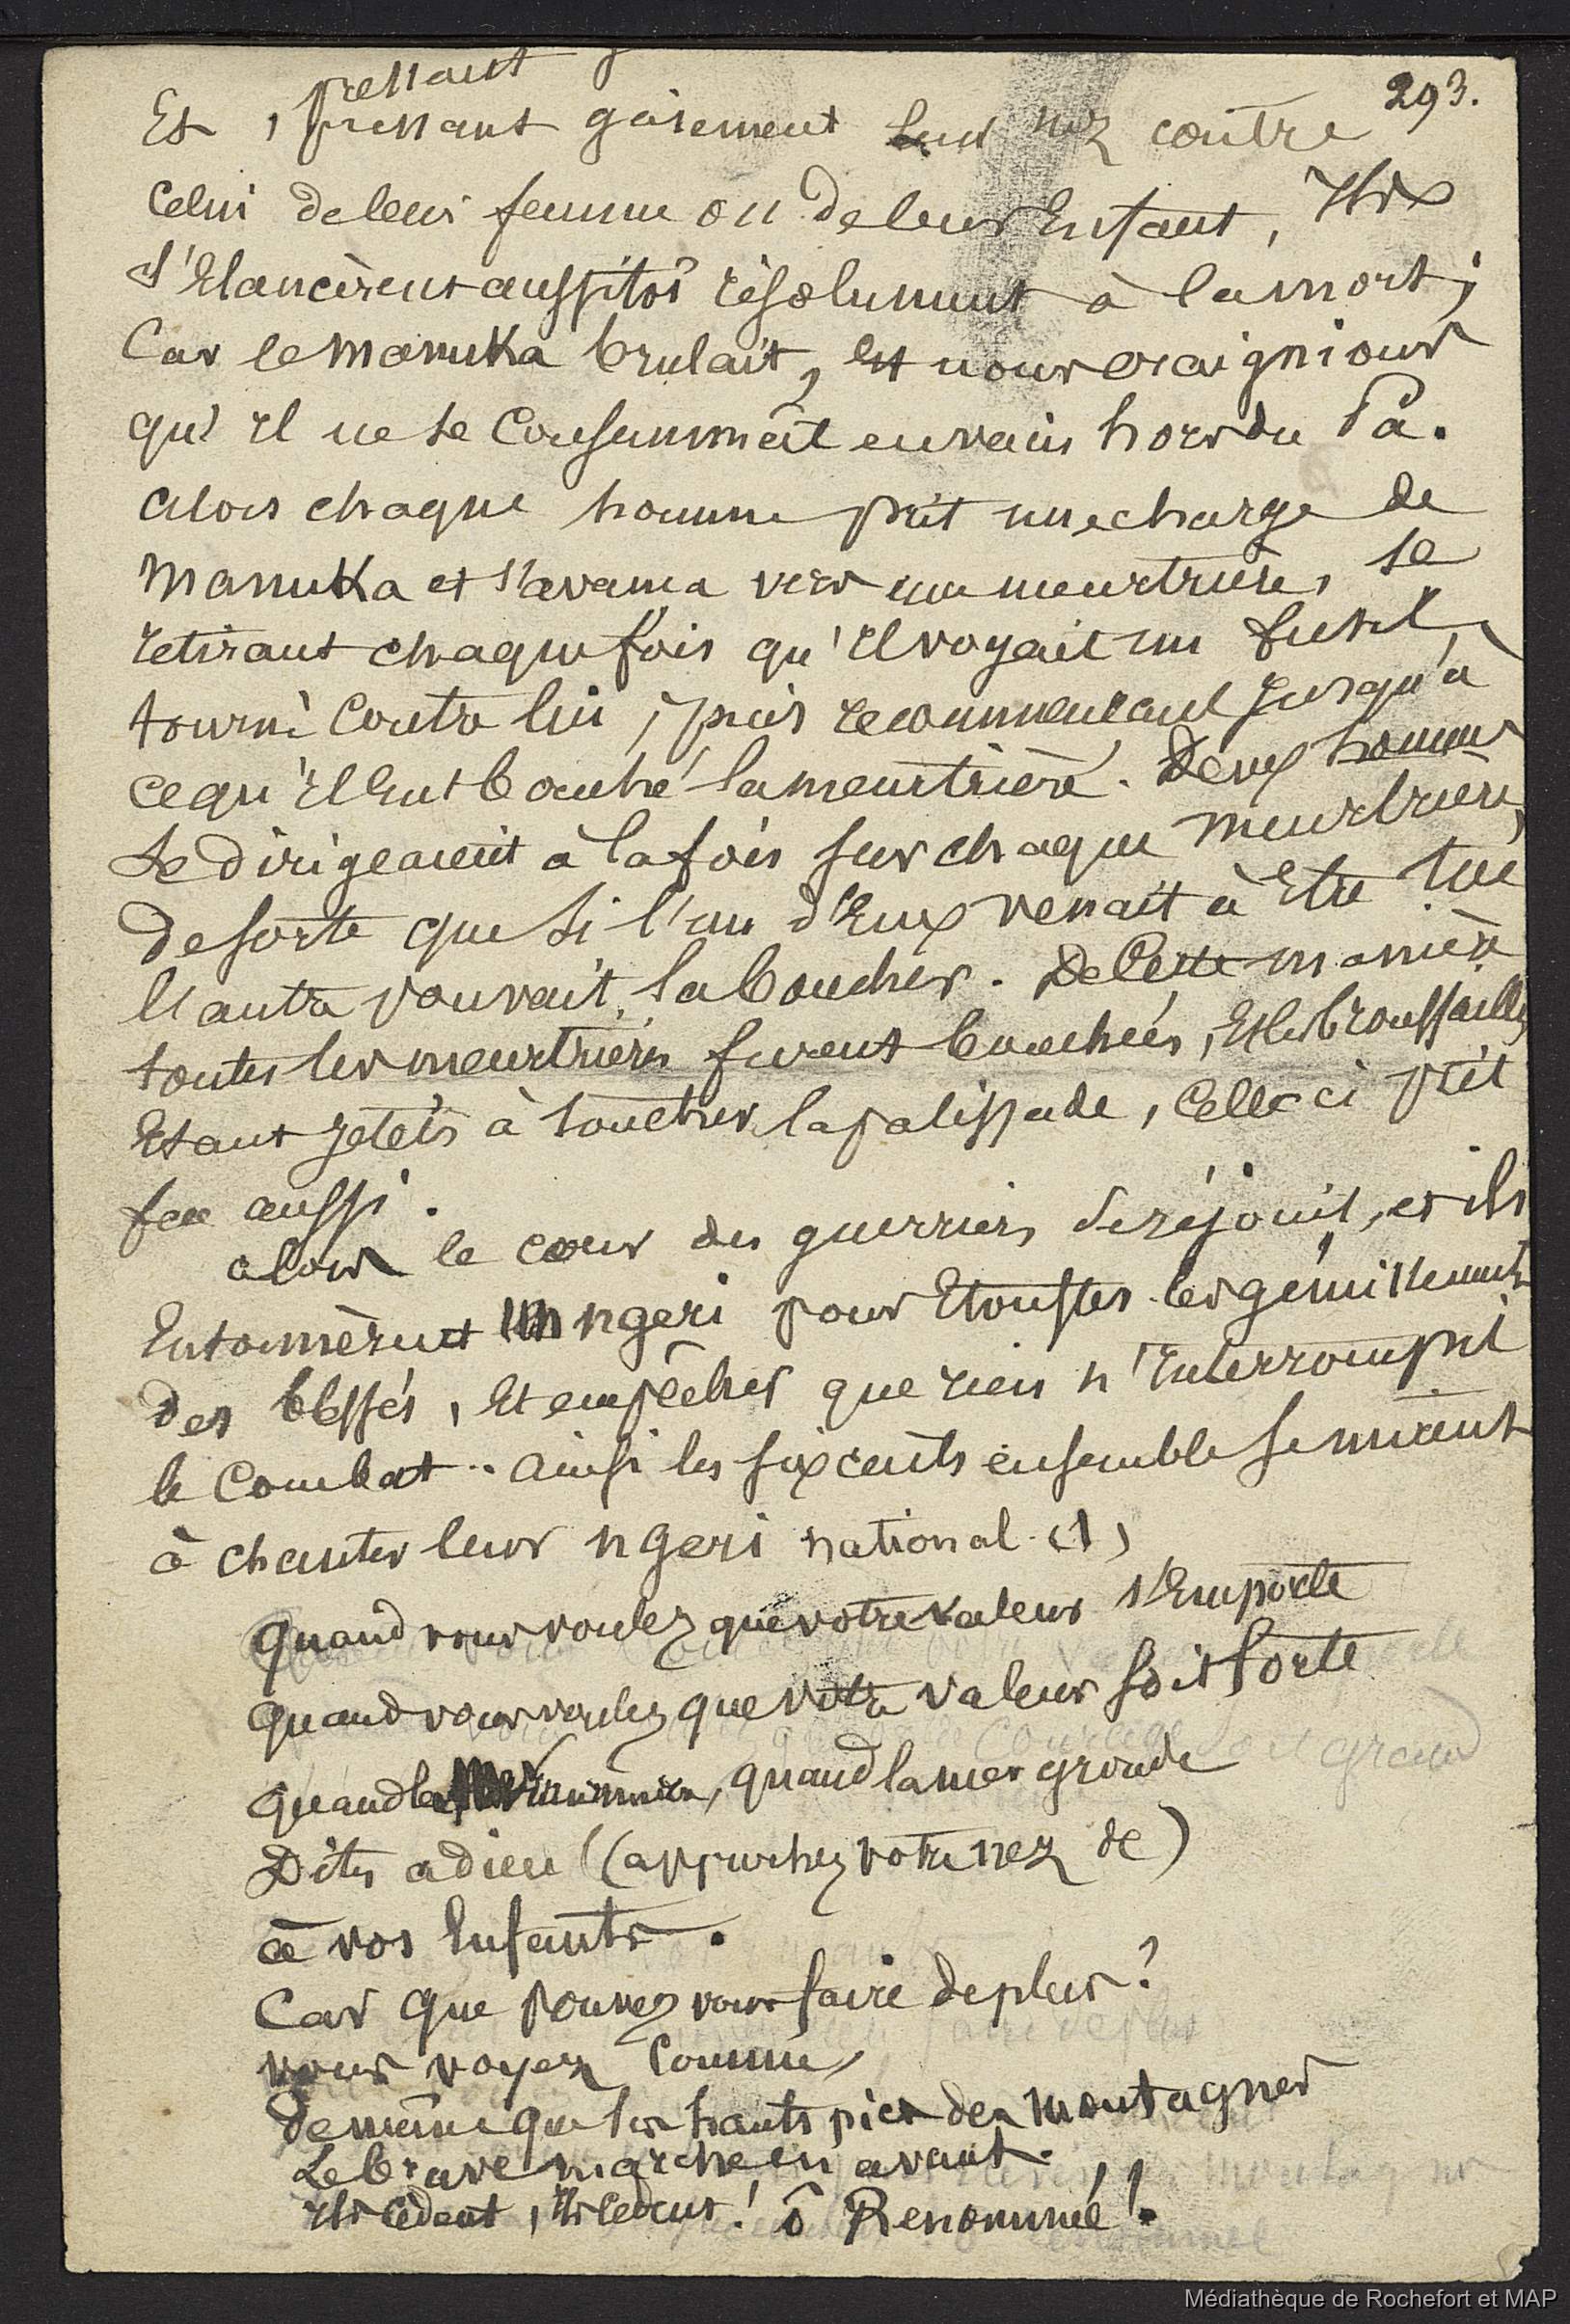 293.
pressant
Et, pressant gaiement leur nez contre
celui de leur femme ou de leur Enfant, Ils
s'Elancèrent aussitôt résolument à la mort;
Car le manuka brulait, Et nous craignions
qu'il ne se Consummât en vain hors du Pa.
alors chaque homme prit une charge de
manuka et s'avança vers une meurtrière, se
retirant chaque fois qu'Il voyait un fusil
tourné Contre lui, puis recommençant jusqu'à
ce qu'Il Eut bouché la meurtrière. Deux hommes
se dirigeaient à la fois sur chaque meurtrière,
de sorte que si l'un d'Eux venait à Etre tué
l'autre pouvait la boucher. De Cette manière
toutes les meurtrières furent bouchées, Et les broussailles
Etant jetées à toucher la palissade, Celle ci prit
feu aussi.
alors le cœur des guerriers se réjouit, et ils
Entonnèrent un ngeri pour Etouffer les gémissements
des blessés, Et empêcher que rien n'Interrompit
le Combat. Ainsi les six cents ensemble se mirent
à chanter leur ngeri national (1)
Quand vous voulez que votre valeur s'Emporte
Quand vous voulez que votre valeur soit forte
Quand la, quand la mer gronde
Dites adieu (approchez votre nez de)
à vos Enfants.
Car que pouvez vous faire de plus?
vous voyez Comme,
de même que les hauts pics des montagnes
Le brave marche en avant.
Ils cèdent, Ils cèdent! ô Renommée!
Médiathèque de Rochefort et MAP